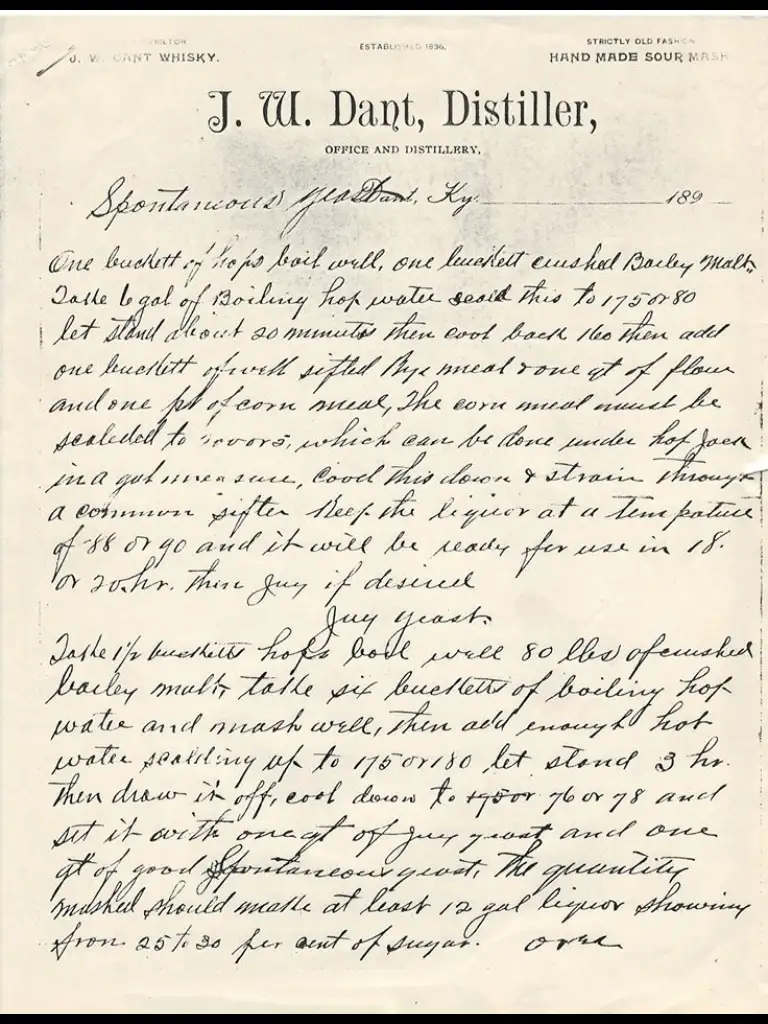 J. W. DANT WHISKY.
ESTABLISHED 1836.
STRICTLY OLD FASHION
HAND MADE SOUR MASH
J. W. Dant, Distiller,
OFFICE AND DISTILLERY,
Spontaneous yeast Dant, Ky. 189
One buckett of hops boil well, one buckett crushed Barley Malt.
Take 6 gal of Boiling hop water scald this to 175 or 80
let stand about 20 minutes then cool back 160 then add
one buckett of well sifted Rye meal & one qt of flour
and one pt of corn meal, The corn meal must be
scalded to which can be done under hop Jack
in a gal measure, cool this down & strain through
a common sifter Keep the liquor at a temperature
of 88 or 90 and it will be ready for use in 18.
or 20 hr. then Jug if desired
Jug yeast.
Take buchetts hops boil well 80 lbs of crushed
barley malt, take six bucketts of boiling hop
water and mash well, then add enough hot
water scalding up to 175 or 180 let stand 3 hr.
then draw it off, cool down to 76 or 78 and
set it with one qt of Jug yeast and one
qt of good Spontaneous yeast, The quantity
mashed should make at least 12 gal liquor showing
from 25 to 30 per cent of sugar. over